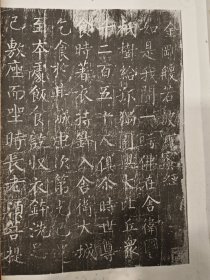 金剛般若波羅蜜經
如是我聞一時佛在舍衛國
祇樹給孤獨園與大比丘衆
千二百五十人俱尒時世尊
食時著衣持鉢入舍衛大城
乞食於其城中次第乞已還
至本處飯食訖收衣鉢洗足
已敷座而坐時長老須菩提